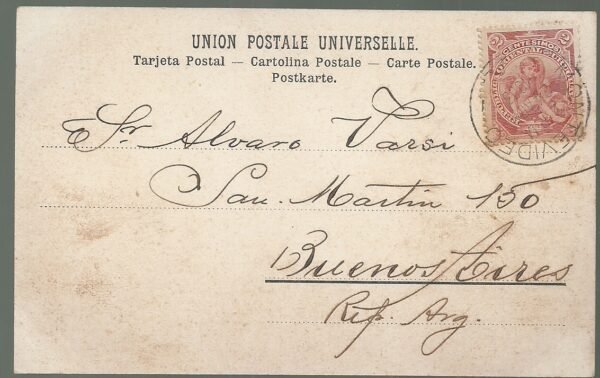 UNION POSTALE UNIVERSELLE.
Tarjeta Postal — Cartolina Postale — Carte Postale.
Postkarte.
2 CENTESIMOS 2
MONTEVIDEO
Sr Alvaro Varsi
San Martin 150
Buenos Aires
Rep. Arg.